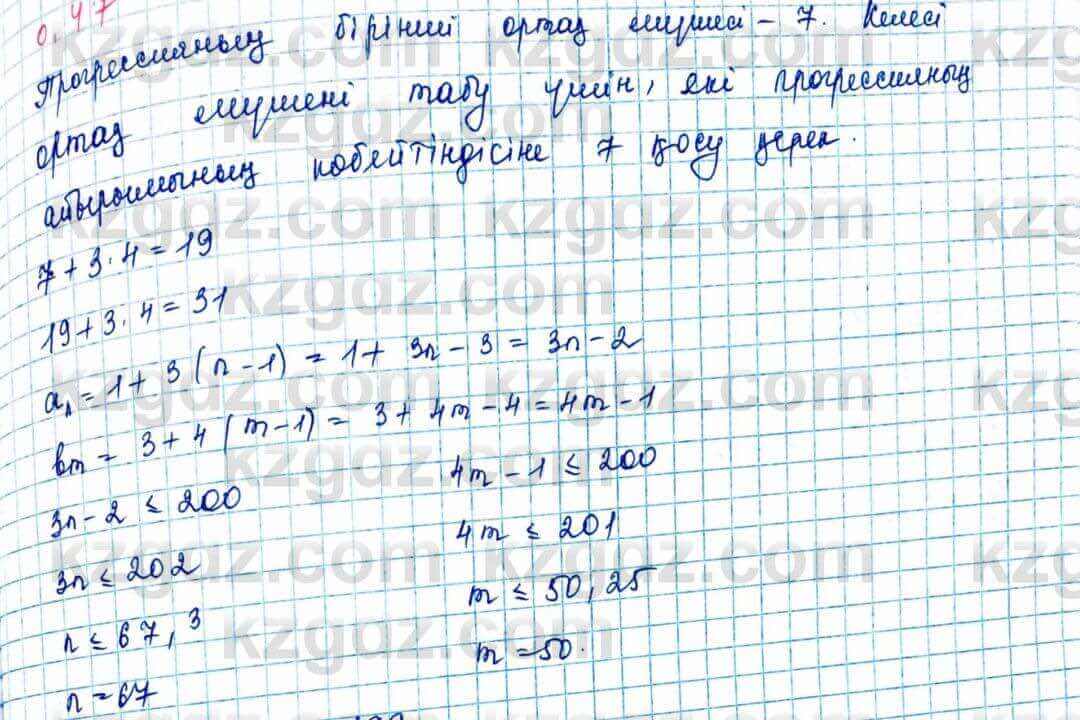 0.47
Прогрессияның бірінші ортақ мүшесі – 7. Келесі
ортақ мүшені табу үшін, екі прогрессияның
айырымының көбейтіндісіне 7 қосу керек.
7 + 3 · 4 = 19
19 + 3 · 4 = 31
aₙ = 1 + 3(n – 1) = 1 + 3n – 3 = 3n – 2
bm = 3 + 4(m – 1) = 3 + 4m – 4 = 4m – 1
3n – 2 ≤ 200
4m – 1 ≤ 200
3n ≤ 202
4m ≤ 201
n ≤ 67,3
m ≤ 50,25
n = 67
m = 50.
kzgdz.com